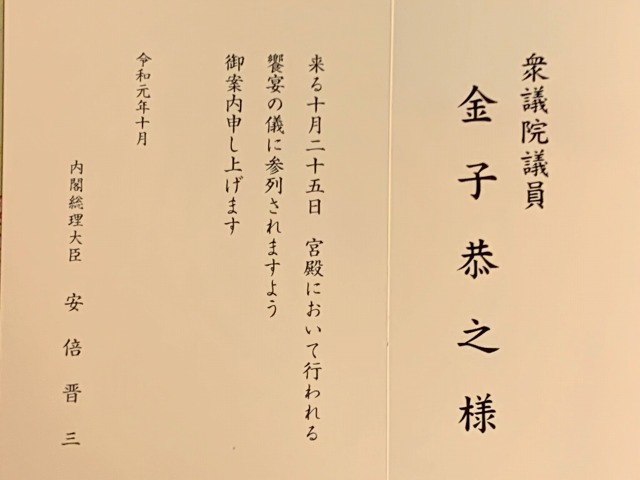 衆議院議員
金子恭之様
来る十月二十五日　宮殿において行われる
饗宴の儀に参列されますよう
御案内申し上げます
令和元年十月
内閣総理大臣　安倍晋三